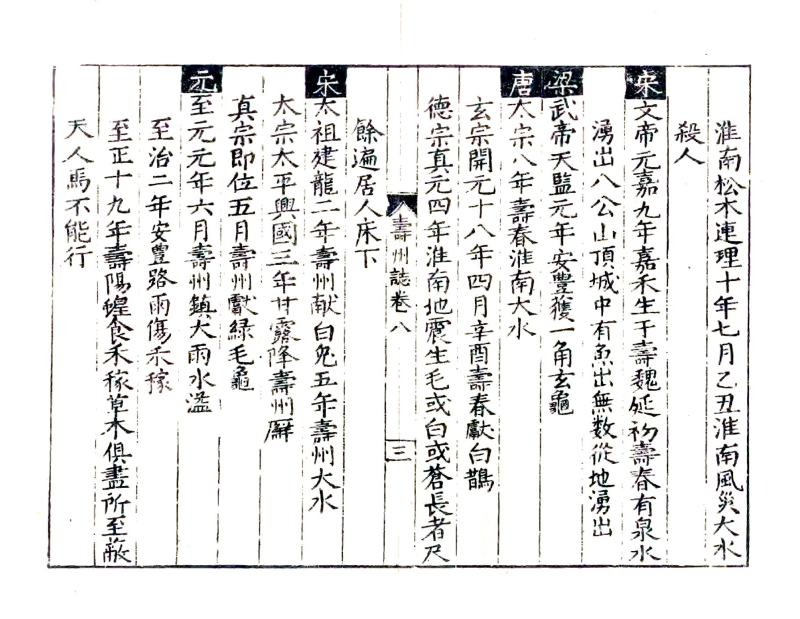 淮南松木連理十年七月乙丑淮南風災大水
殺人
宋文帝元嘉九年嘉禾生于壽魏延初壽春有泉水
湧出八公山頂城中有魚出無数從地湧出
梁武帝天監元年安豊獲一角玄龜
唐太宗八年壽春淮南大水
玄宗開元十八年四月辛酉壽春獻白鵲
德宗真元四年淮南地震生毛或白或蒼長者尺
壽州誌卷八
三
餘遍居人床下
宋太祖建龍二年壽州献白兔五年壽州大水
太宗太平興國三年甘露降壽州廨
真宗即位五月壽州獻綠毛龜
元至元元年六月壽州鎮大雨水溢
至治二年安豊路雨傷禾稼
至正十九年壽陽蝗食禾稼草木俱盡所至蔽
天人馬不能行